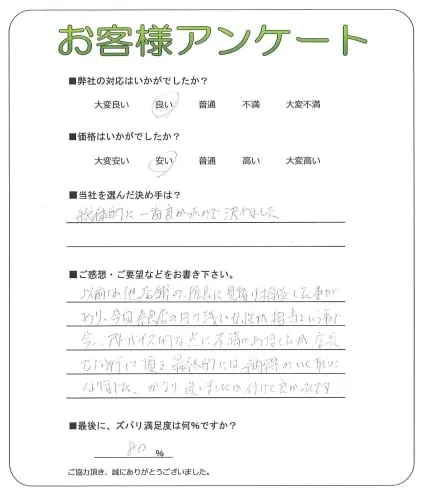 お客様アンケート
■弊社の対応はいかがでしたか？
大変良い 良い 普通 不満 大変不満
■価格はいかがでしたか？
大変安い 安い 普通 高い 大変高い
■当社を選んだ決め手は？
総体的に一番良かったので決めました
■ご感想・ご要望などをお書き下さい。
以前は他店舗の所長に見積り相談した事が
あり、今回
の浅い女性が担当という事で
アドバイス的な点に不満
最終的には納得のいく
なりました、かなり迷いましたが付けて良かったです。
■最後に、ズバリ満足度は何％ですか？
80 %
ご協力頂き、誠にありがとうございました。